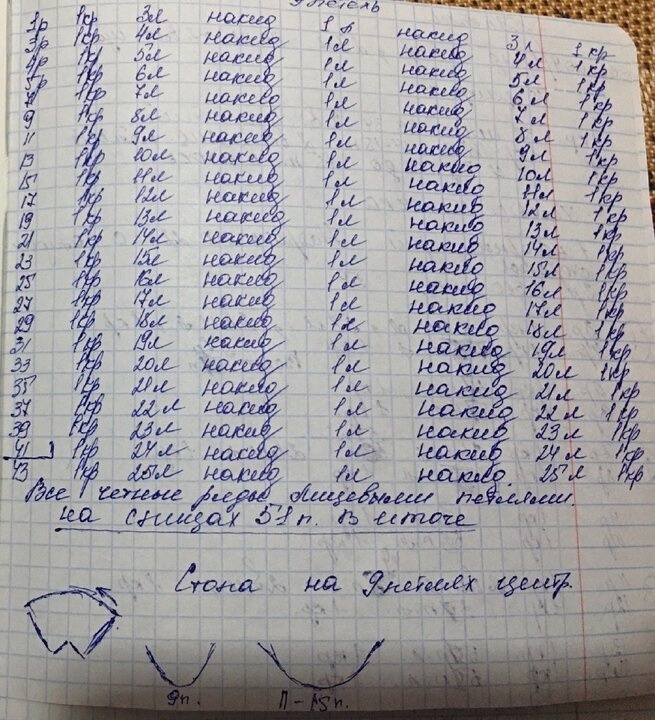 9 петель
1р 1кр 3л накид 1л накид 3л 1кр
3р 1кр 4л накид 1л накид 4л 1кр
4р 1кр 5л накид 1л накид 5л 1кр
5р 1кр 6л накид 1л накид 6л 1кр
7 1кр 7л накид 1л накид 7л 1кр
9 1кр 8л накид 1л накид 8л 1кр
11 1кр 9л накид 1л накид 9л 1кр
13 1кр 10л накид 1л накид 10л 1кр
15 1кр 11л накид 1л накид 11л 1кр
17 1кр 12л накид 1л накид 12л 1кр
19 1кр 13л накид 1л накид 13л 1кр
21 1кр 14л накид 1л накид 14л 1кр
23 1кр 15л накид 1л накид 15л 1кр
25 1кр 16л накид 1л накид 16л 1кр
27 1кр 17л накид 1л накид 17л 1кр
29 1кр 18л накид 1л накид 18л 1кр
31 1кр 19л накид 1л накид 19л 1кр
33 1кр 20л накид 1л накид 20л 1кр
35 1кр 21л накид 1л накид 21л 1кр
37 1кр 22л накид 1л накид 22л 1кр
39 1кр 23л накид 1л накид 23л 1кр
41 1кр 24л накид 1л накид 24л 1кр
43 1кр 25л накид 1л накид 25л 1кр
Все четные ряды лицевыми петлями.
на спицах 51п. В итоге
Стопа на 9 петлях центр.
9п. 11-15п.